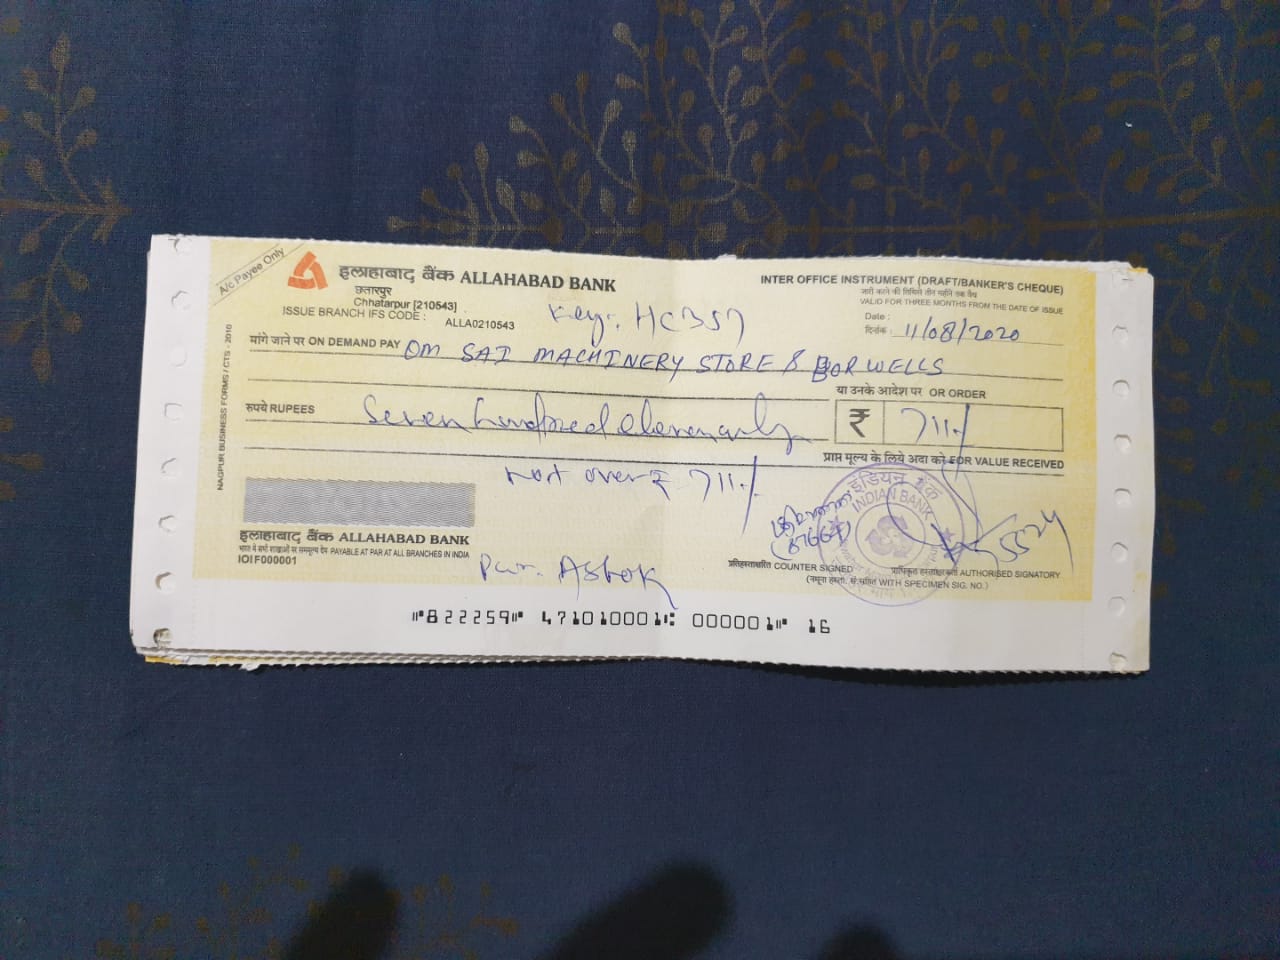 A/c Payee Only
इलाहाबाद बैंक ALLAHABAD BANK
छतारपुर
Chhatarpur [210543]
ISSUE BRANCH IFS CODE : ALLA0210543
Key:- HC357
INTER OFFICE INSTRUMENT (DRAFT/BANKER'S CHEQUE)
जारी करने की तिथिसे तीन महीने तक वैध
VALID FOR THREE MONTHS FROM THE DATE OF ISSUE
Date :
दिनांक : 11/08/2020
मांगे जाने पर ON DEMAND PAY OM SAI MACHINERY STORE & BORWELLS
या उनके आदेश पर OR ORDER
रुपये RUPEES Seven hundred eleven only
₹ 711/-
प्राप्त मूल्य के लिये अदा करें FOR VALUE RECEIVED
not over ₹ 711/-
इंडियन बैंक
INDIAN BANK
इलाहाबाद बैंक ALLAHABAD BANK
भारत में सभी शाखाओं पर सममूल्य देय PAYABLE AT PAR AT ALL BRANCHES IN INDIA
IOIF000001
Pur. Ashok
प्रतिहस्ताक्षरित COUNTER SIGNED
प्राधिकृत हस्ताक्षरकर्ता AUTHORISED SIGNATORY
(नमूना हस्ता. सं.सहित WITH SPECIMEN SIG. NO.)
⑈822259⑈ 471010001⑆ 000001⑈ 16
NAGPUR BUSINESS FORMS / CTS - 2010